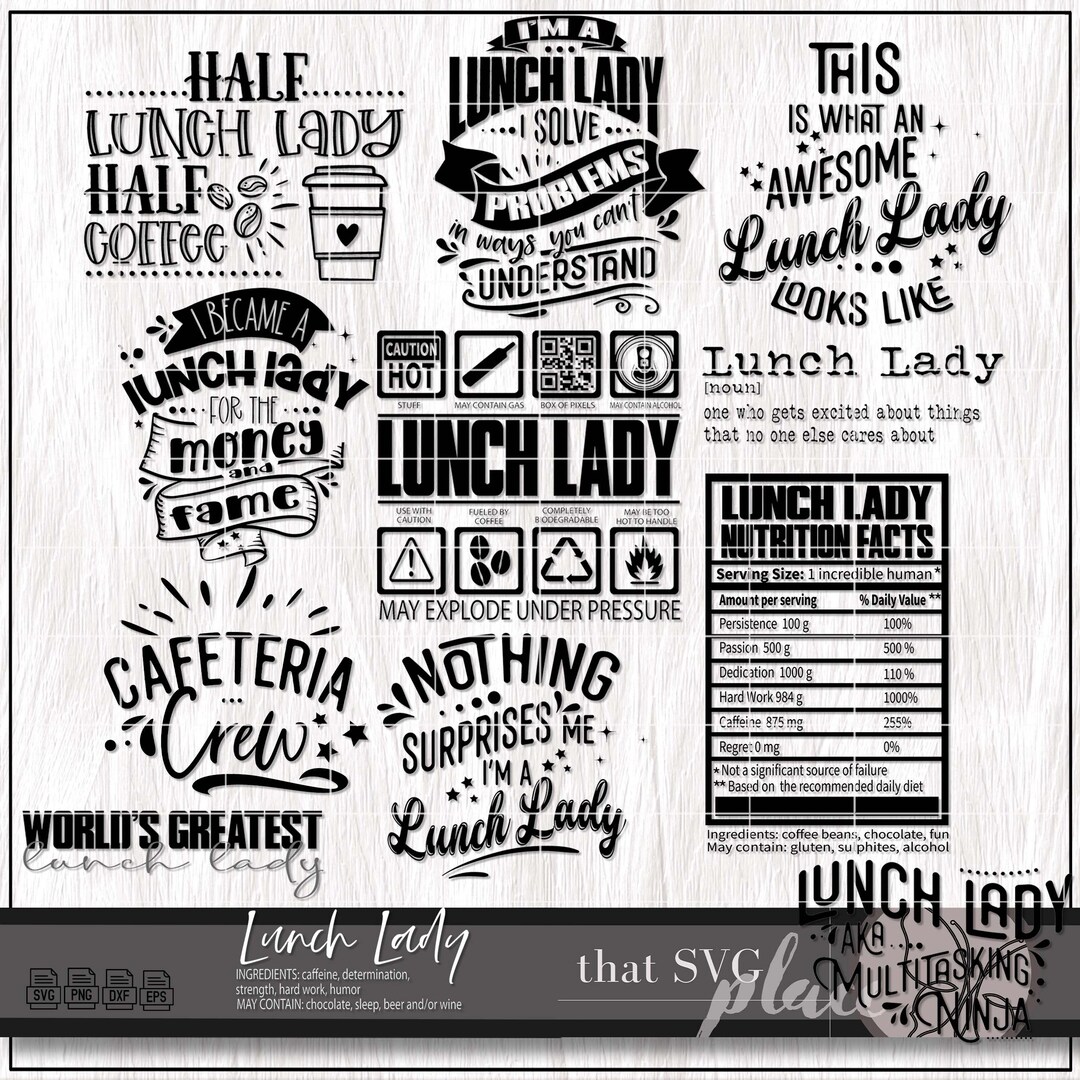 HALF
LUNCH LADY
HALF
COFFEE
I'M A
LUNCH LADY
I SOLVE
PROBLEMS
in ways you can't
UNDERSTAND
THIS
IS WHAT AN
AWESOME
Lunch Lady
LOOKS LIKE
I BECAME A
LUNCH LADY
FOR THE
money
and
fame
CAUTION
HOT
STUFF
MAY CONTAIN GAS
BOX OF PIXELS
MAY CONTAIN ALCOHOL
LUNCH LADY
USE WITH CAUTION
FUELED BY COFFEE
COMPLETELY BIODEGRADABLE
MAY BE TOO HOT TO HANDLE
MAY EXPLODE UNDER PRESSURE
Lunch Lady
[noun]
one who gets excited about things
that no one else cares about
LUNCH LADY
NUTRITION FACTS
Serving Size: 1 incredible human*
Amount per serving % Daily Value **
Persistence 100 g 100%
Passion 500 g 500 %
Dedication 1000 g 110 %
Hard Work 984 g 1000%
Caffeine 875 mg 255%
Regret 0 mg 0%
*Not a significant source of failure
** Based on the recommended daily diet
Ingredients: coffee beans, chocolate, fun
May contain: gluten, sulphites, alcohol
CAFETERIA
Crew
NOTHING
SURPRISES ME
I'M A
Lunch Lady
WORLD'S GREATEST
lunch lady
LUNCH LADY
AKA
MULTITASKING
NINJA
Lunch Lady
INGREDIENTS: caffeine, determination,
strength, hard work, humor
MAY CONTAIN: chocolate, sleep, beer and/or wine
SVG PNG DXF EPS
that SVG
place